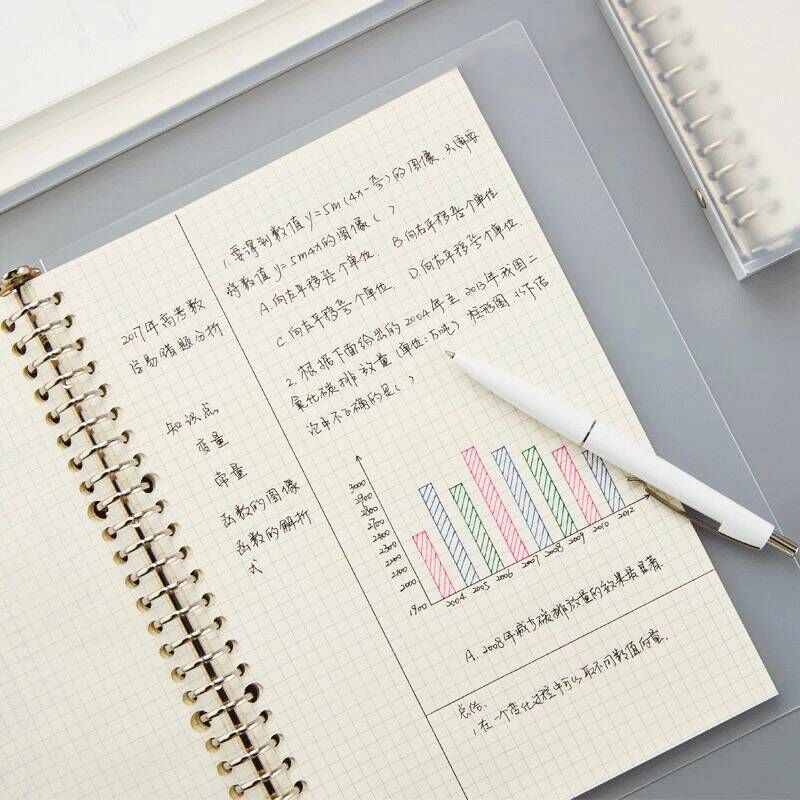 2017年高考数
学易错题分析
知识点
变量
常量
函数的图像
函数的解析
式
1.要得到数值y=5m(4x-)的图像.只需要
将数值y=5m4x的图像( )
A.向左平移个单位. B向右平移个单位
C向左平移个单位. D.向右平移个单位.
2.根据下面给出的2004年至2013年我国二
氧化碳排放量(单位:万吨)柱形图.以下结
论中不正确的是( )
3000
2900
2800
2700
2400
2300
2200
2100
2000
1900
2004 2005 2006 2007 2008 2009 2010 2012
A.2008年减少碳排放量的效果最显著.
总结:
1.在一个变化过程中可以取不同数值的量.